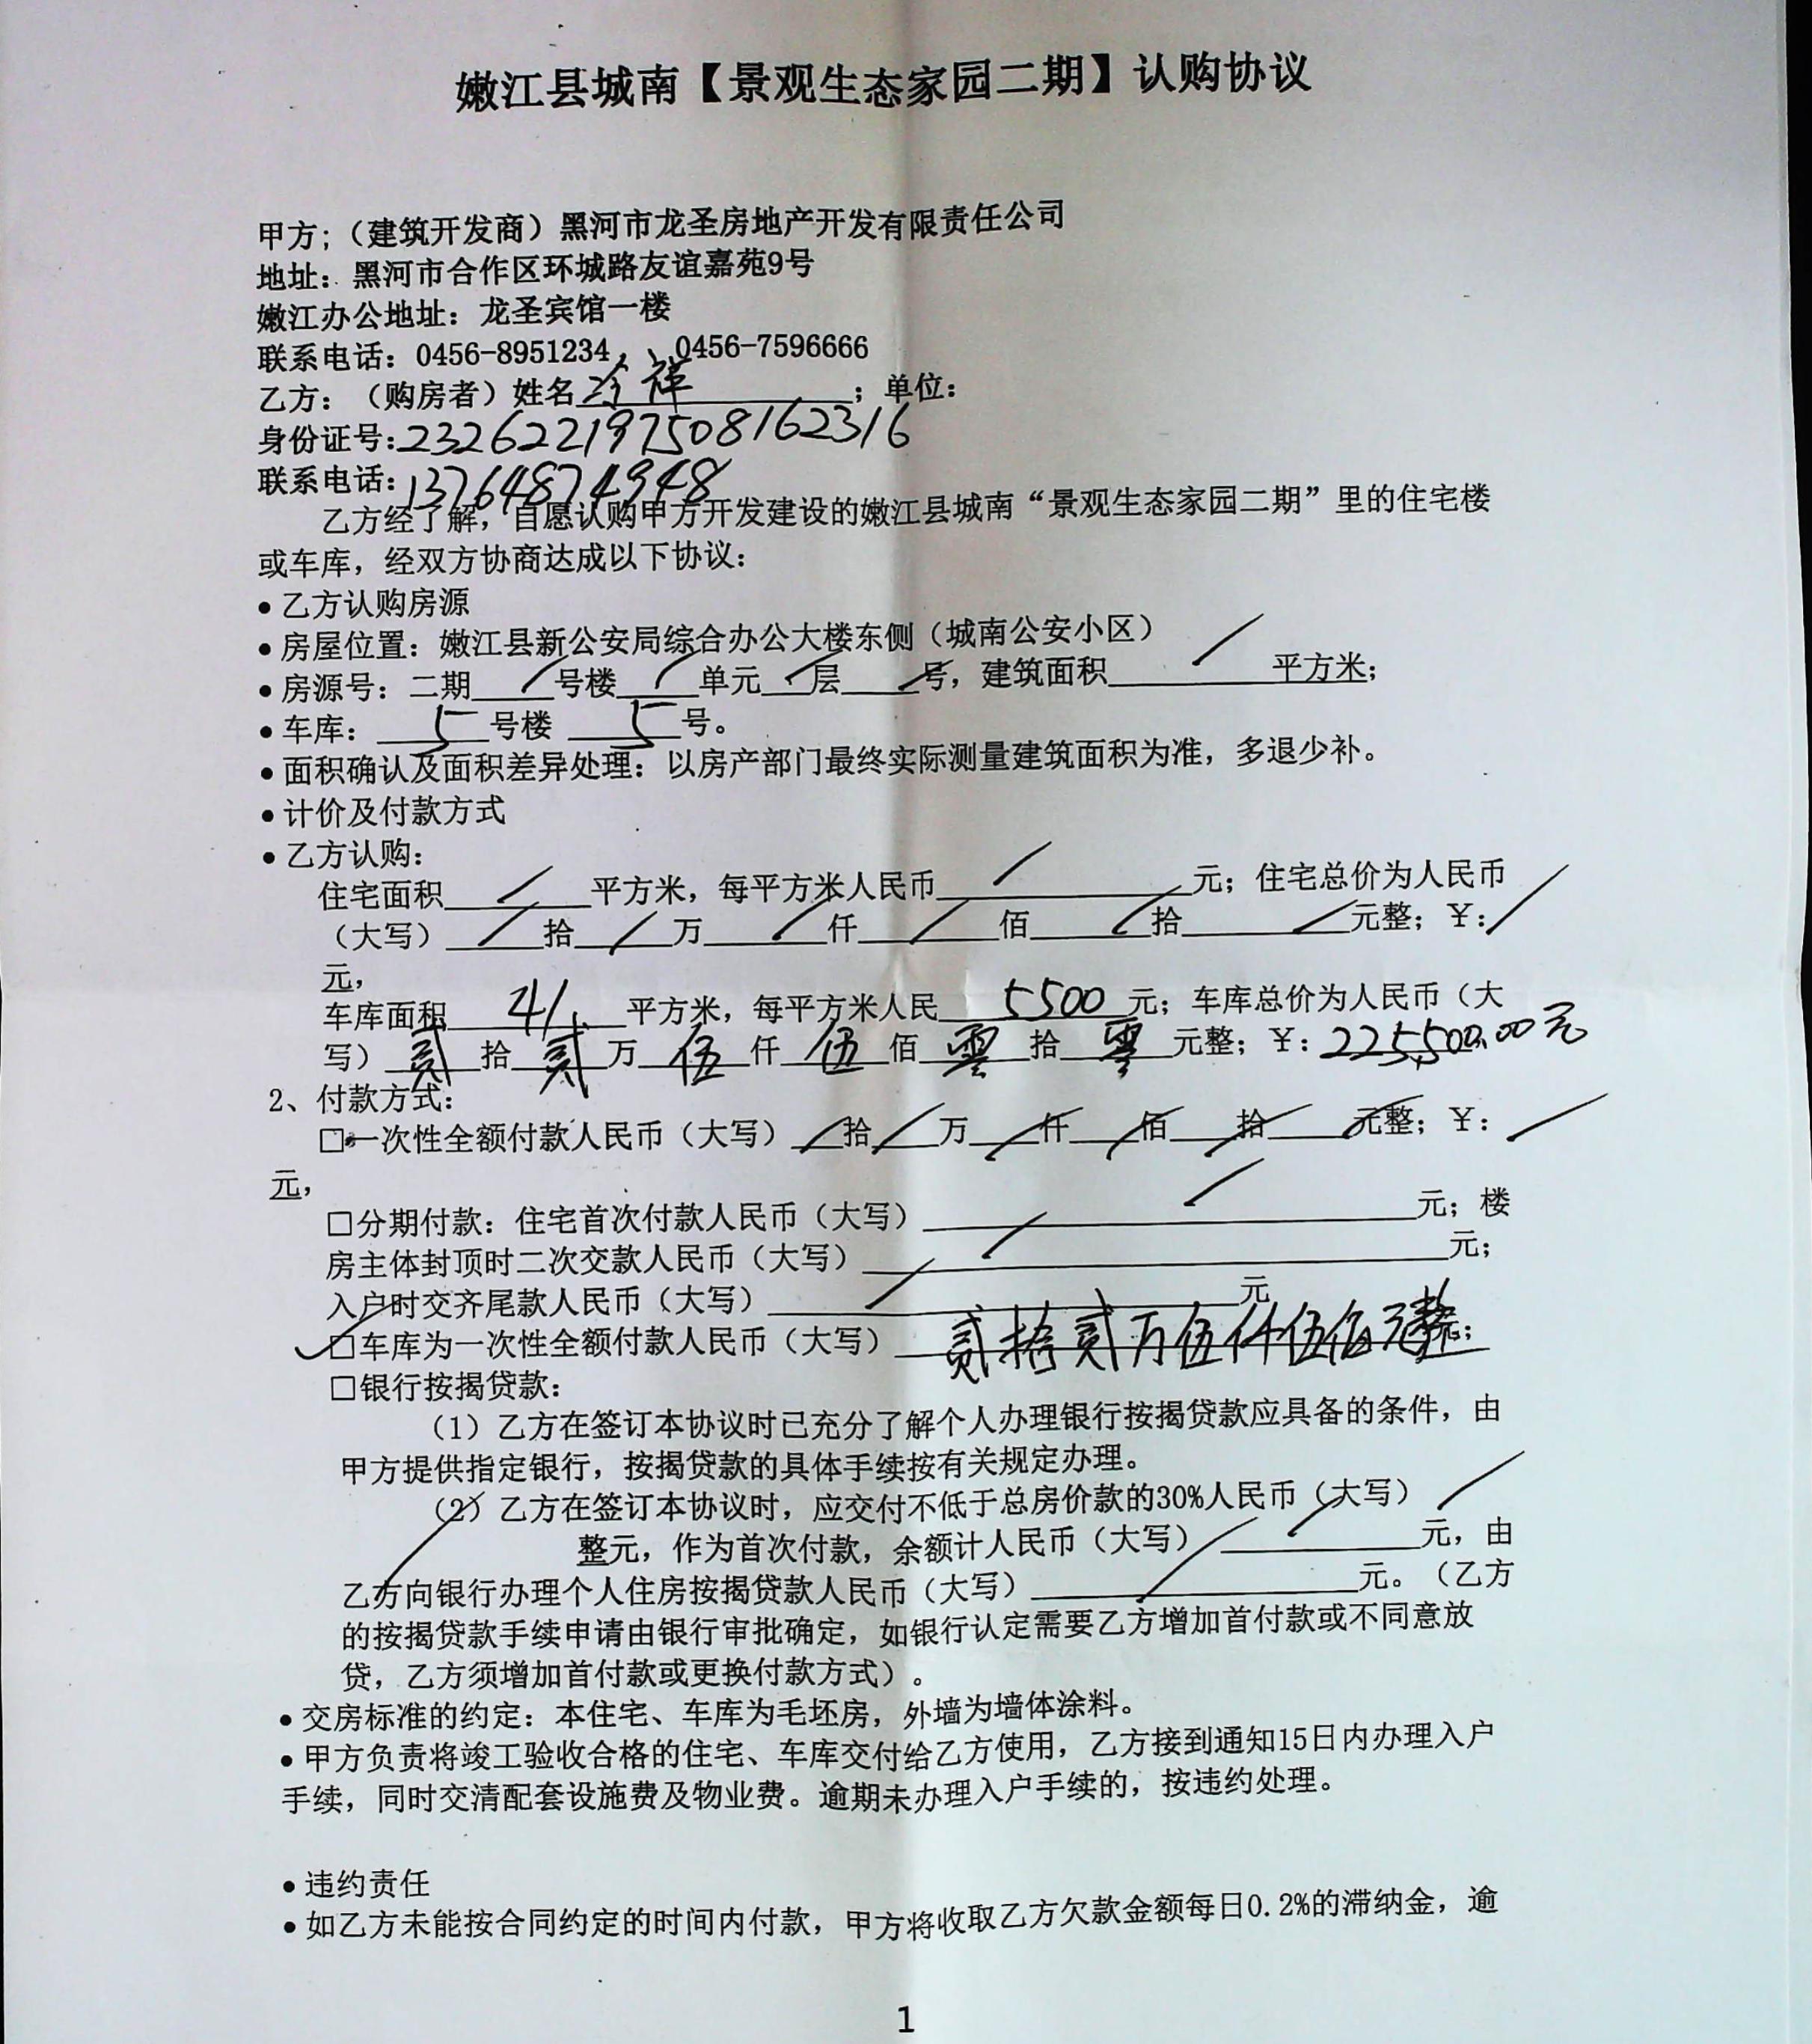 嫩江县城南【景观生态家园二期】认购协议
甲方;（建筑开发商）黑河市龙圣房地产开发有限责任公司
地址：黑河市合作区环城路友谊嘉苑9号
嫩江办公地址：龙圣宾馆一楼
联系电话：0456-8951234、0456-7596666
乙方：（购房者）姓名 冷祥；单位：
身份证号:232622197508162316
联系电话:13764874948
乙方经了解，自愿认购甲方开发建设的嫩江县城南“景观生态家园二期”里的住宅楼
或车库，经双方协商达成以下协议：
●乙方认购房源
●房屋位置：嫩江县新公安局综合办公大楼东侧（城南公安小区）
●房源号：二期 / 号楼 / 单元 / 层 / 号，建筑面积 / 平方米；
●车库： 5 号楼 5 号。
●面积确认及面积差异处理：以房产部门最终实际测量建筑面积为准，多退少补。
●计价及付款方式
●乙方认购：
住宅面积 / 平方米，每平方米人民币 / 元；住宅总价为人民币
（大写） / 拾 / 万 / 仟 / 佰 / 拾 / 元整；￥：/
元，
车库面积 41 平方米，每平方米人民 5500 元；车库总价为人民币（大
写） 贰 拾 贰 万 伍 仟 伍 佰 零 拾 零 元整；￥：225,500.00元
2、付款方式：
□一次性全额付款人民币（大写） / 拾 / 万 / 仟 / 佰 / 拾 / 元整；￥： /
元，
□分期付款：住宅首次付款人民币（大写） / 元；楼
房主体封顶时二次交款人民币（大写） / 元；
入户时交齐尾款人民币（大写） / 元
✓□车库为一次性全额付款人民币（大写） 贰拾贰万伍仟伍佰元整；
□银行按揭贷款：
（1）乙方在签订本协议时已充分了解个人办理银行按揭贷款应具备的条件，由
甲方提供指定银行，按揭贷款的具体手续按有关规定办理。
（2）乙方在签订本协议时，应交付不低于总房价款的30%人民币（大写） /
整元，作为首次付款，余额计人民币（大写） / 元，由
乙方向银行办理个人住房按揭贷款人民币（大写） / 元。（乙方
的按揭贷款手续申请由银行审批确定，如银行认定需要乙方增加首付款或不同意放
贷，乙方须增加首付款或更换付款方式）。
●交房标准的约定：本住宅、车库为毛坯房，外墙为墙体涂料。
●甲方负责将竣工验收合格的住宅、车库交付给乙方使用，乙方接到通知15日内办理入户
手续，同时交清配套设施费及物业费。逾期未办理入户手续的，按违约处理。
●违约责任
●如乙方未能按合同约定的时间内付款，甲方将收取乙方欠款金额每日0.2%的滞纳金，逾
1